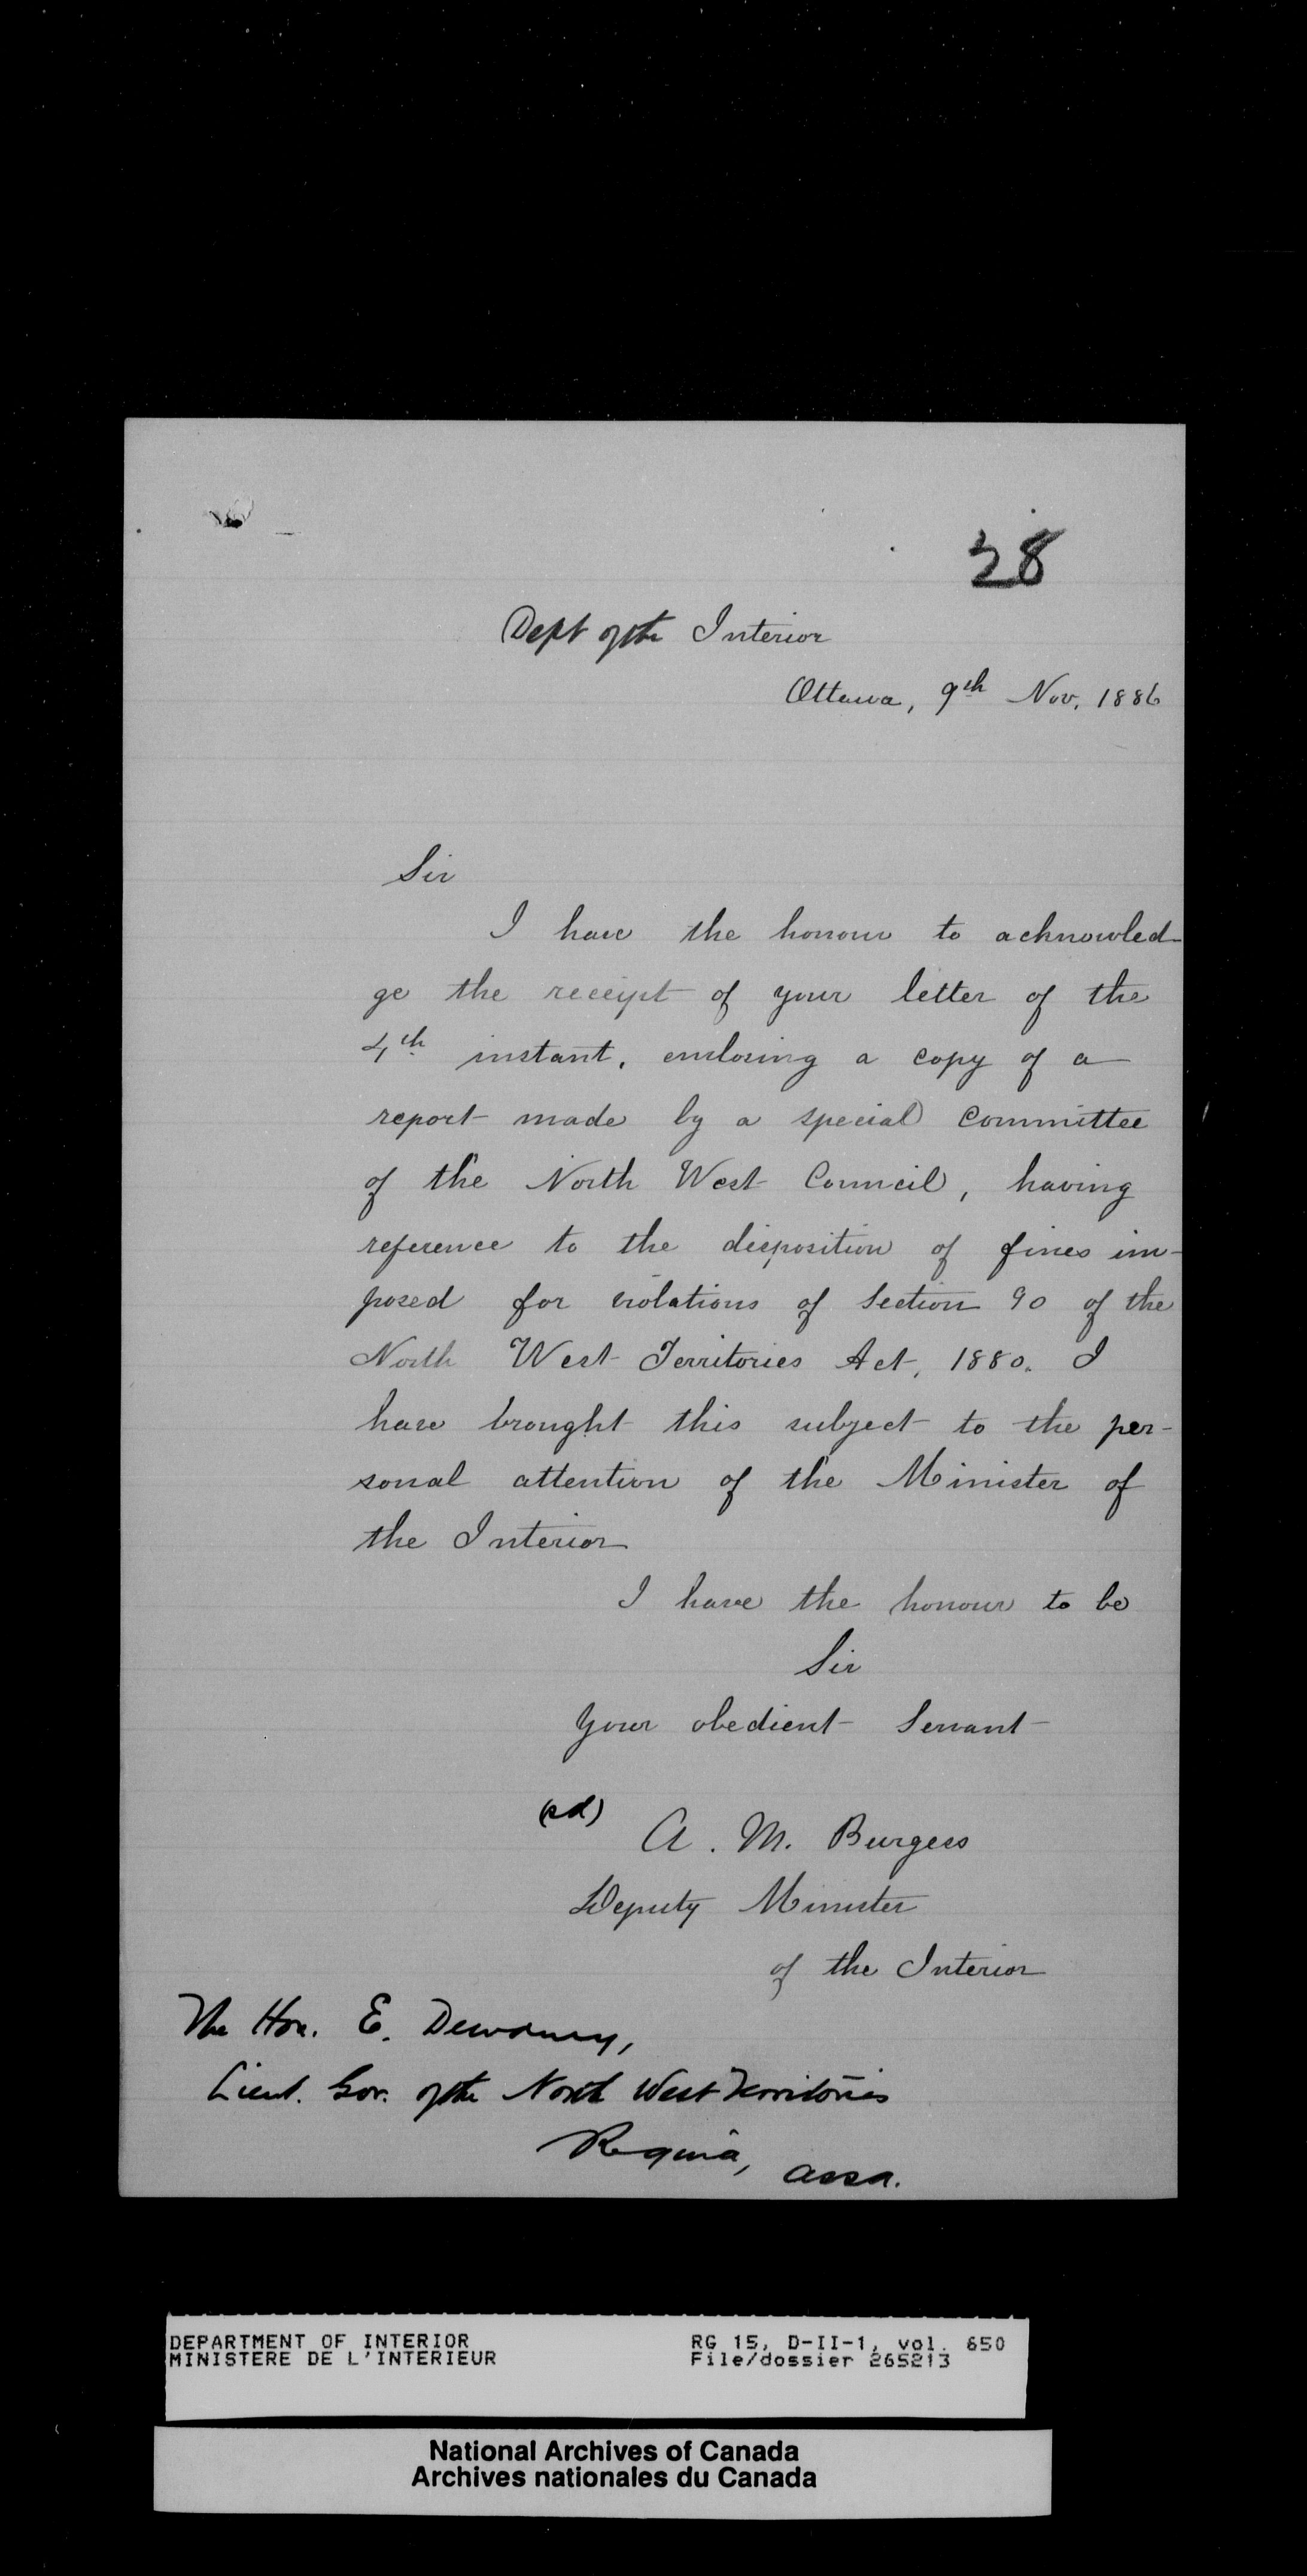 28
Dept of the Interior
Ottawa, 9th Nov. 1886
Sir
I have the honour to acknowled-
ge the receipt of your letter of the
4th instant, enclosing a copy of a
report made by a special Committee
of the North West Council, having
reference to the disposition of fines im-
posed for violations of Section 90 of the
North West Territories Act, 1880. I
have brought this subject to the per-
sonal attention of the Minister of
the Interior
I have the honour to be
Sir
Your obedient Servant
(sd)
A. M. Burgess
Deputy Minister
of the Interior
The Hon. E. Dewdney,
Lieut. Gov. of the North West Territories
Regina, Assa.
DEPARTMENT OF INTERIOR
MINISTERE DE L'INTERIEUR
RG 15, D-II-1, vol. 650
File/dossier 265213
National Archives of Canada
Archives nationales du Canada